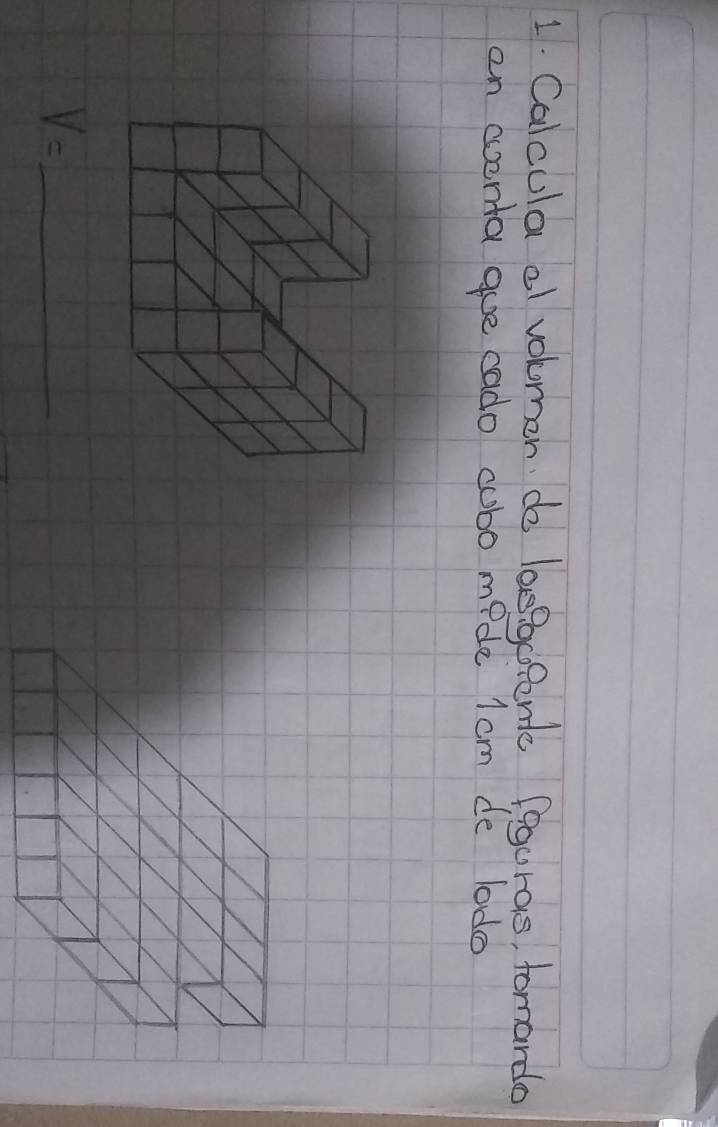 1. Calcula el volumen de lasiguiente figuras, tomando
en cuenta que cado cubo mide 1cm de lado
V=